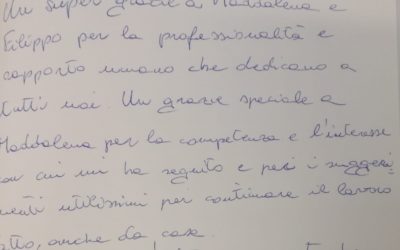 Un super grazie a Maddalena e
Filippo per la professionalità e
rapporto umano che dedicano a
tutti noi. Un grazie speciale a
Maddalena per la competenza e l'interesse
con cui mi ha seguito e per i suggeri
menti utilissimi per continuare il lavoro
fatto, anche da casa.